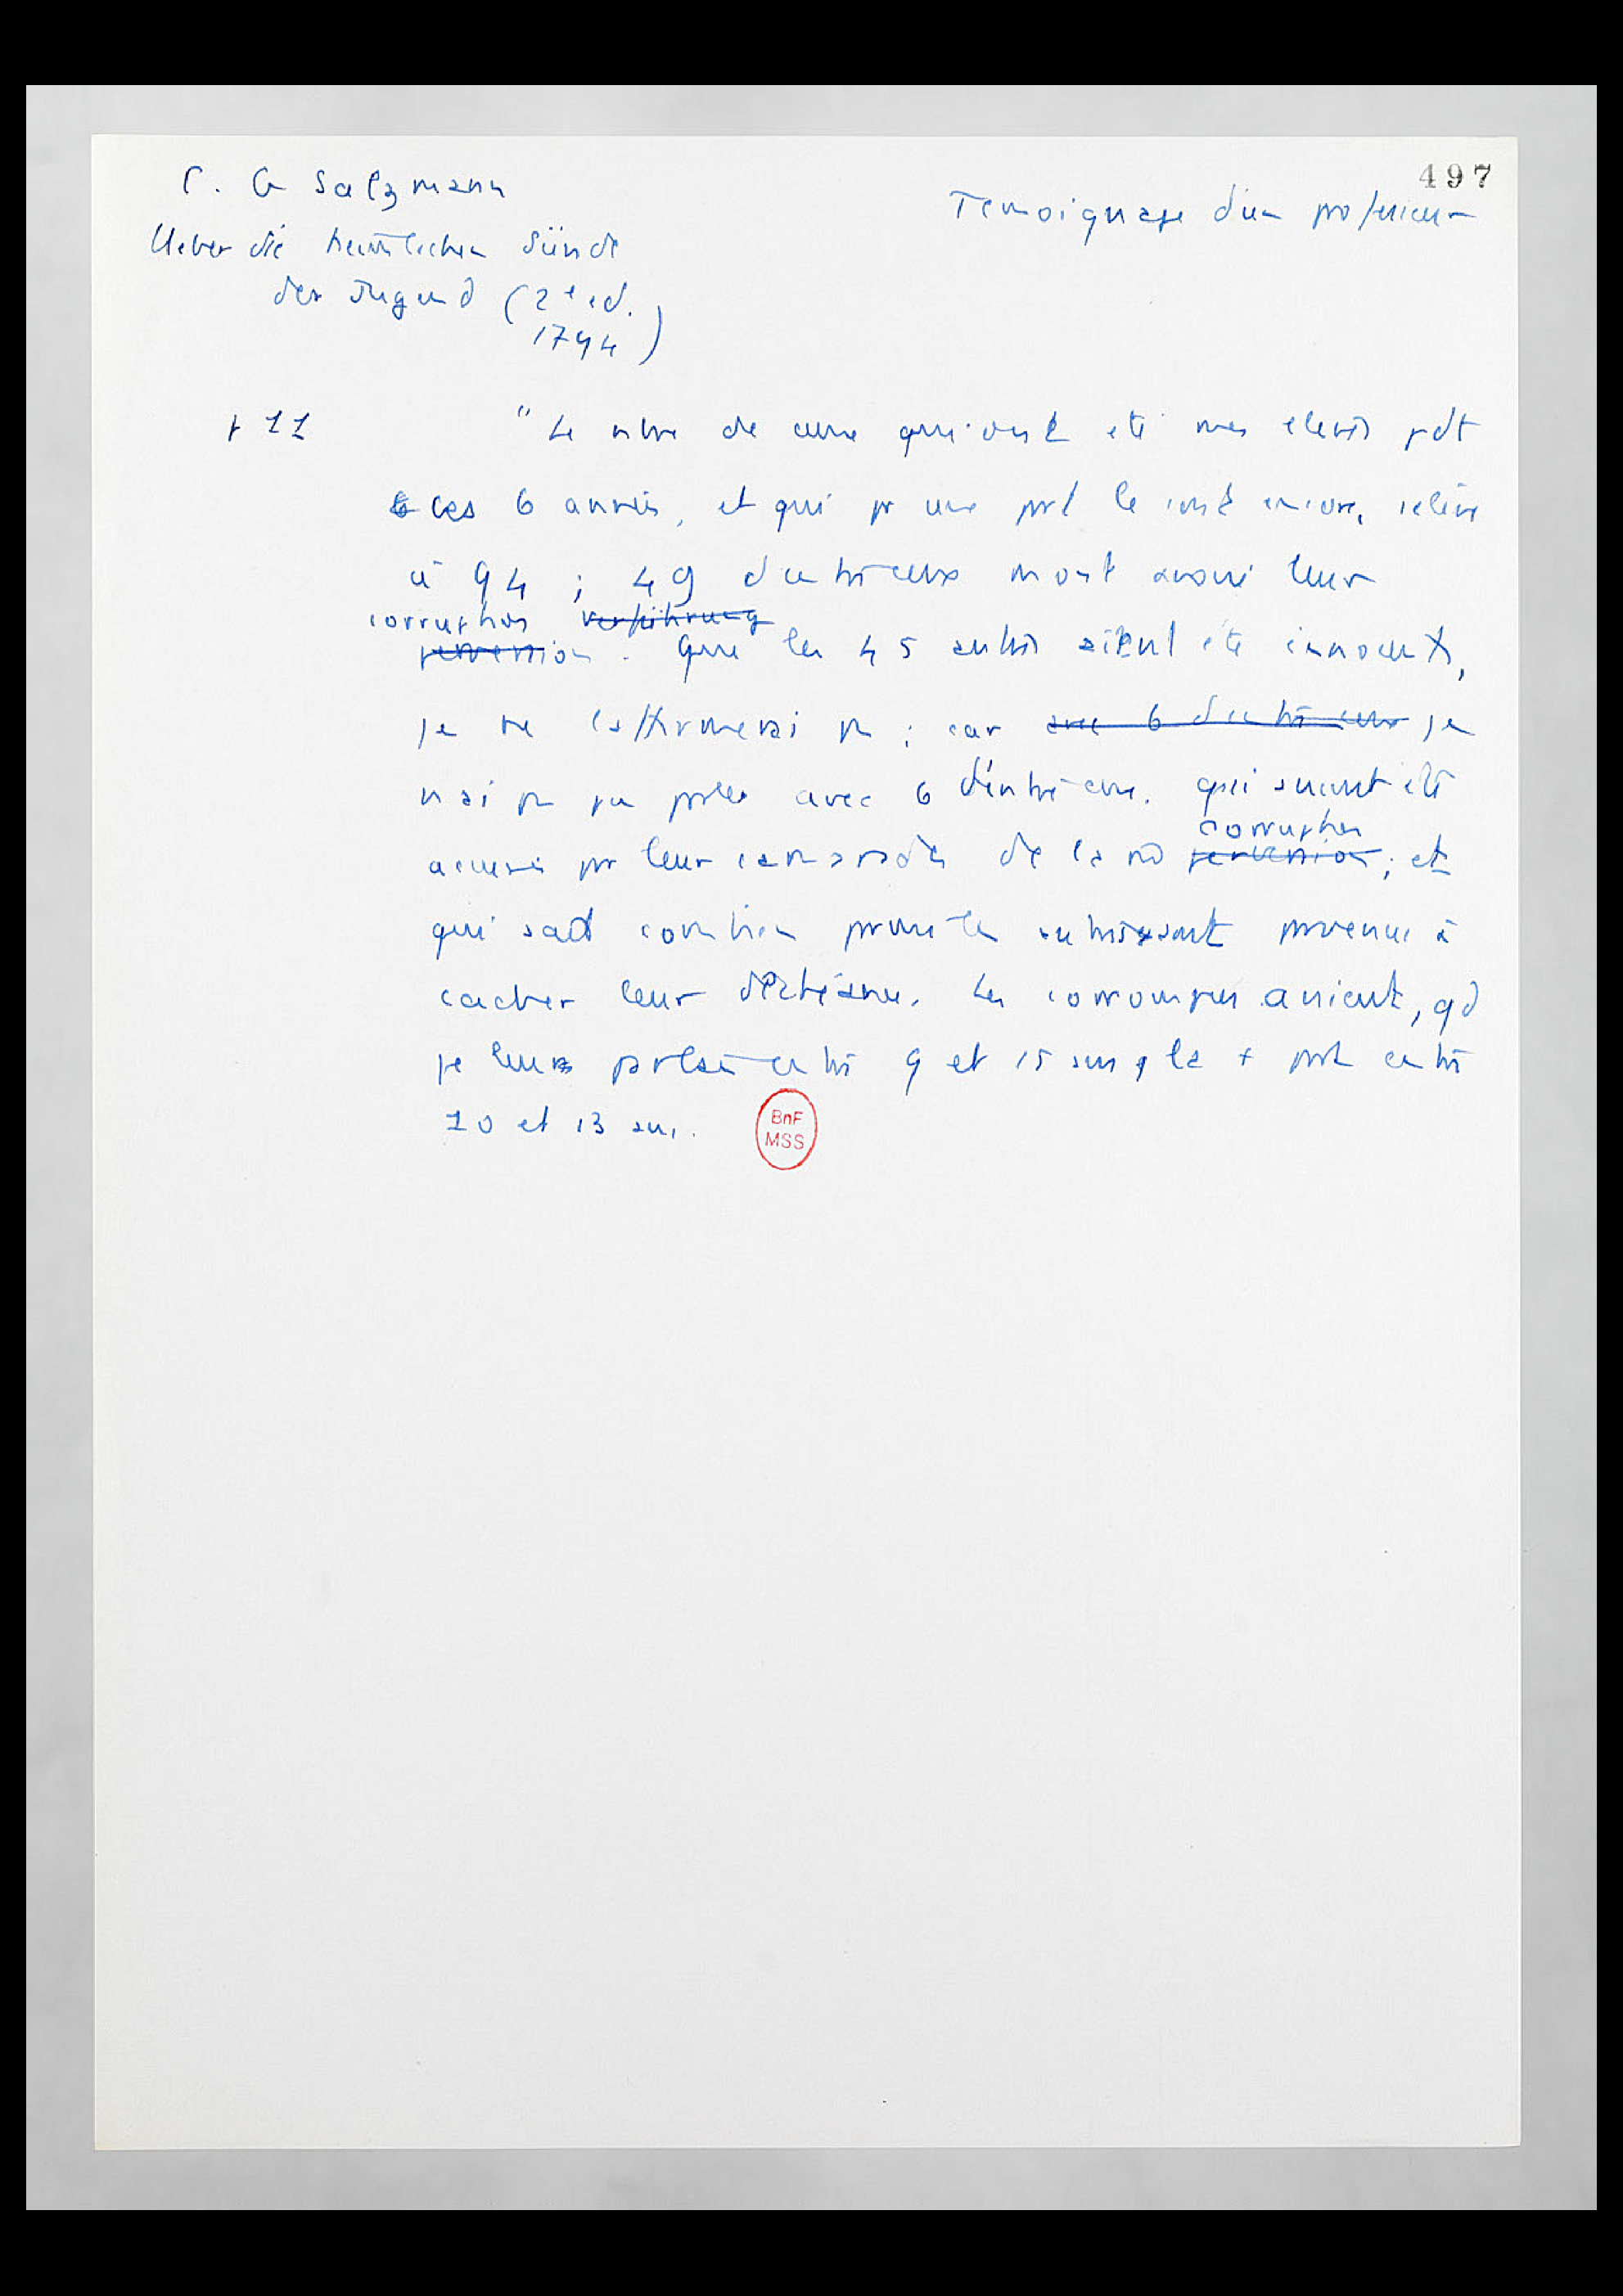 497
C. G Salzmann
Temoignage d'un professeur
Ueber die heimlichen Sünde
der Jugend (2e ed.
1794)
p 11
"Le nbre de ceux qui ont eté mes eleves pdt
ces 6 années, et qui pr une part le sont encore, s'elève
à 94 ; 49 d'entre eux m'ont avoué leur
corruption verführung
perversion. Que les 45 autres aient été innocents,
je ne l'affirmerai pas ; car avec 6 d'entre eux je
n'ai pas pu parler avec 6 d'entre eux. qui avaient été
corruption
accusés par leur camarades de la mê perversion ; et
qui sait combien parmi les autres sont parvenus à
cacher leur déchéance. Les corrompus avaient, qd
je leur parlai entre 9 et 15 ans, la + part entre
10 et 13 ans.
BnF
MSS